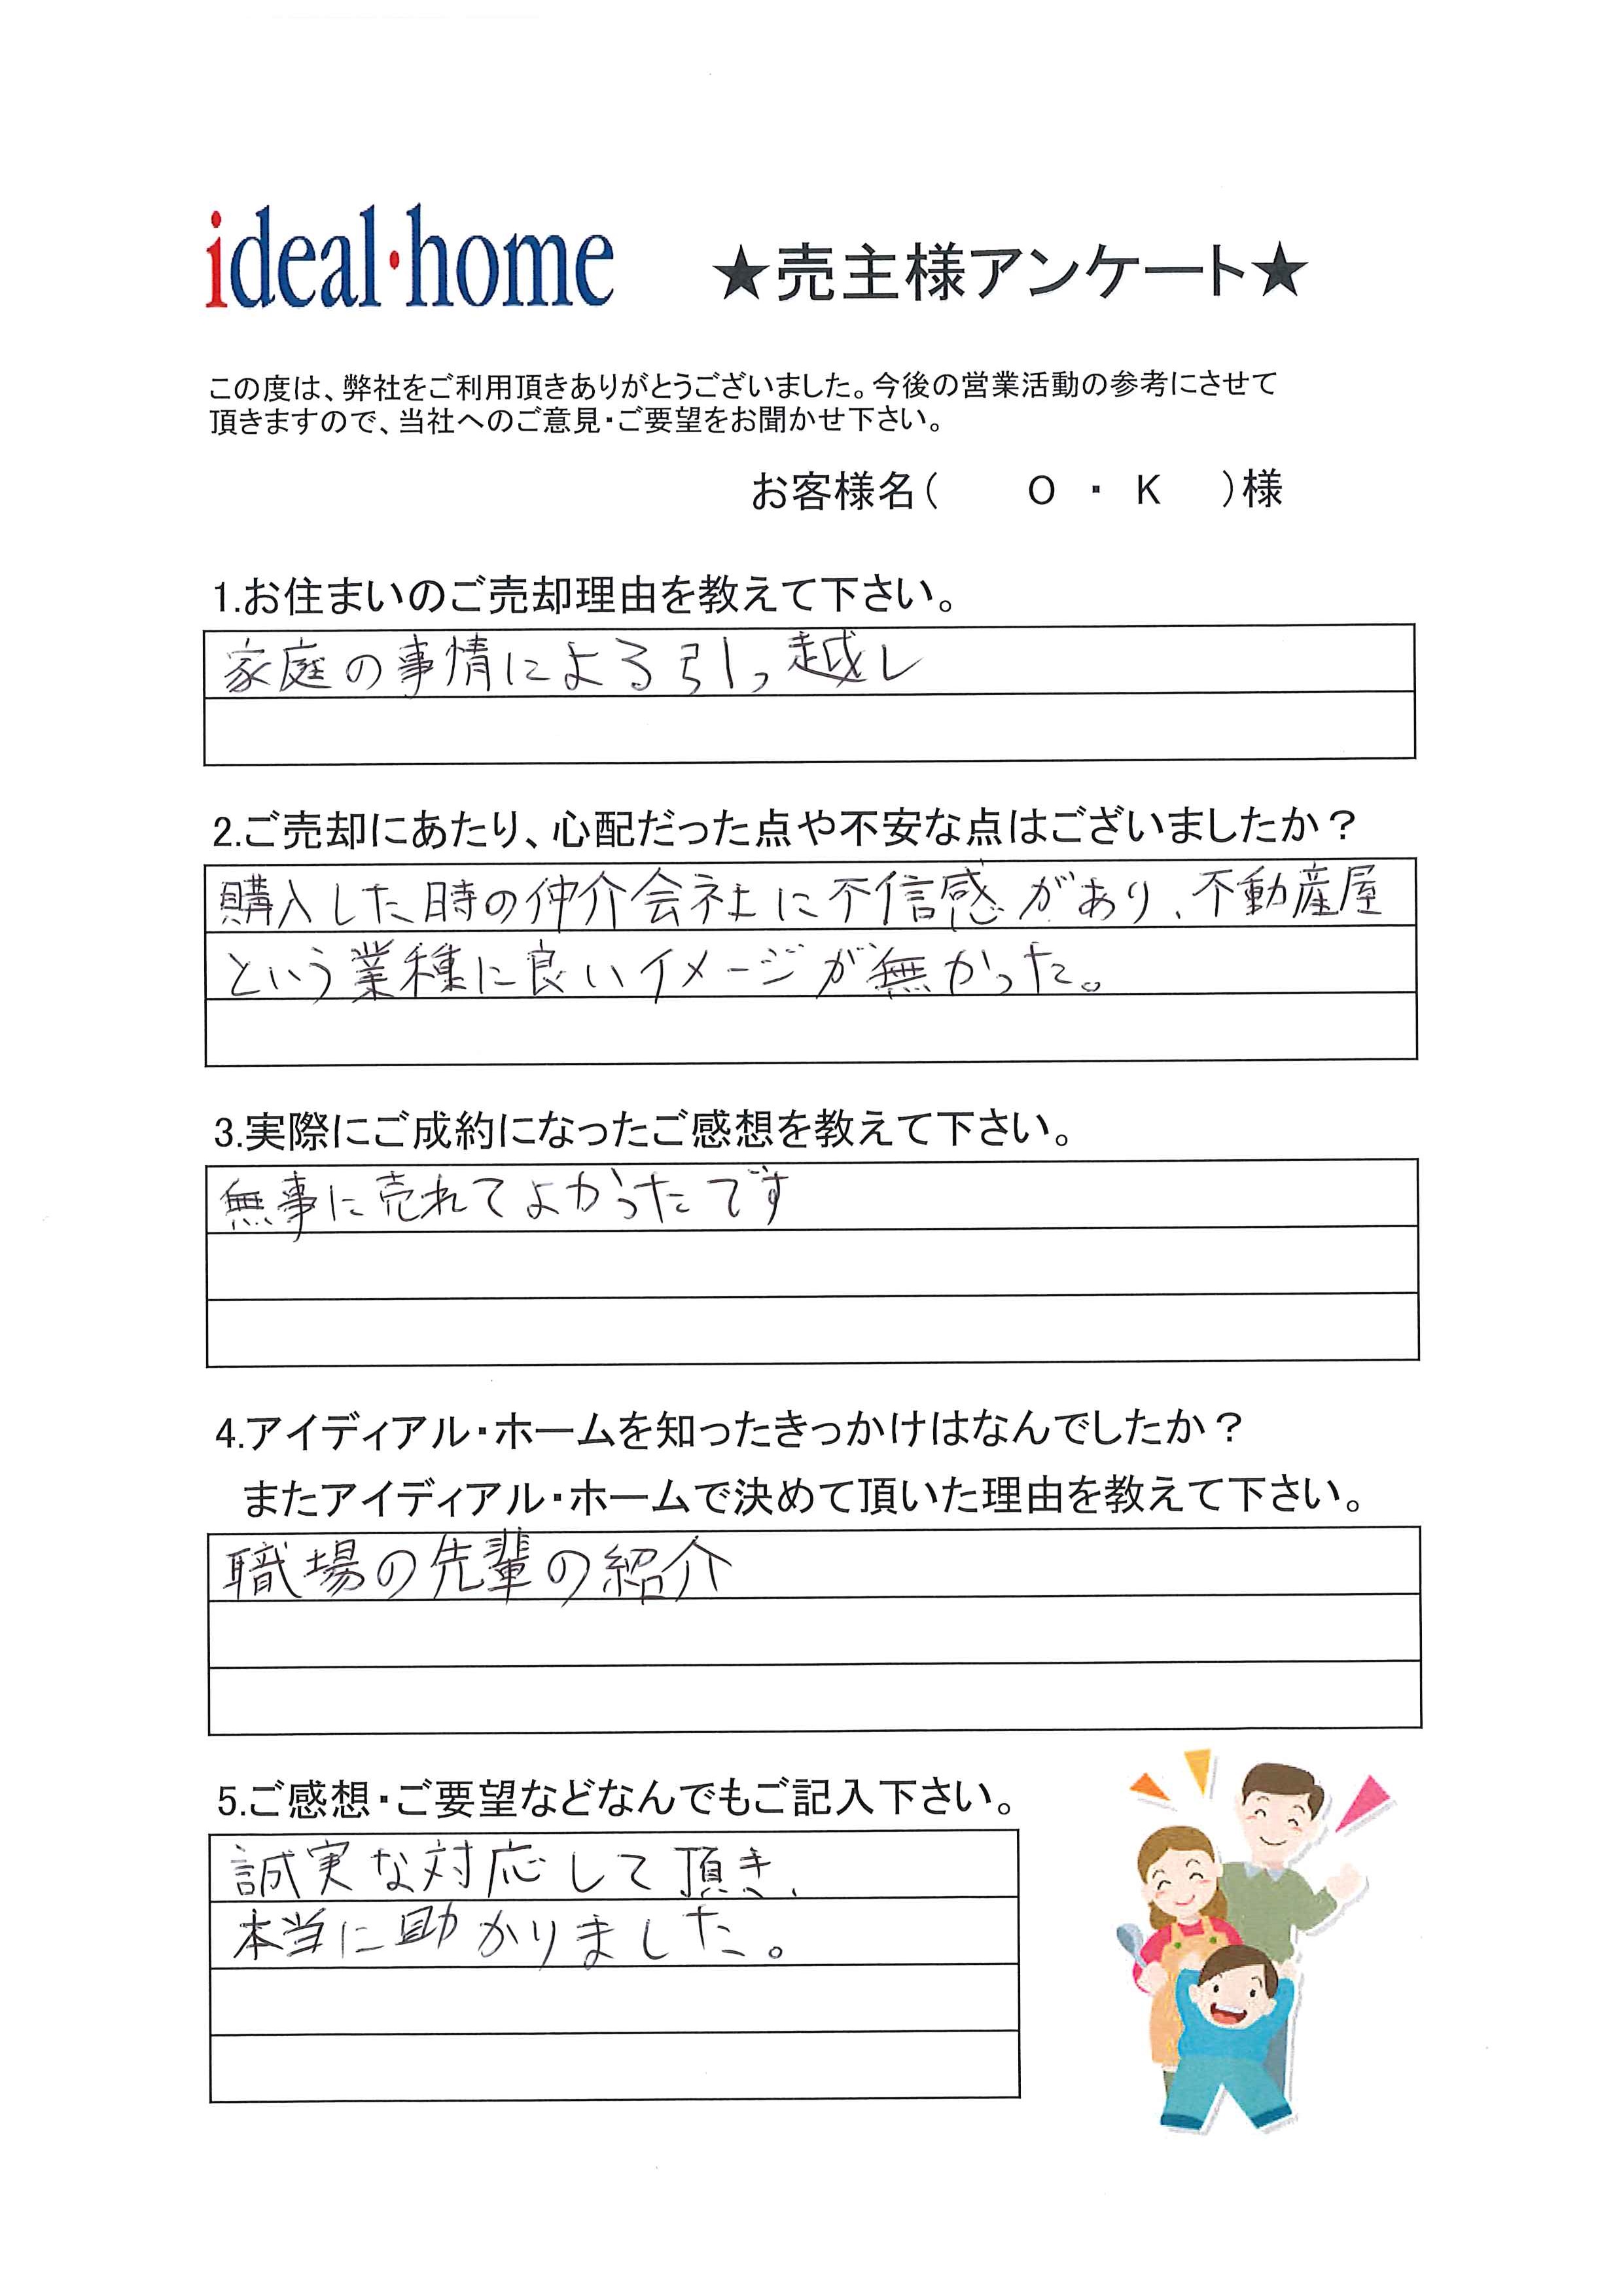 ideal・home ★売主様アンケート★
この度は、弊社をご利用頂きありがとうございました。今後の営業活動の参考にさせて
頂きますので、当社へのご意見・ご要望をお聞かせ下さい。
お客様名（ O ・ K ）様
1.お住まいのご売却理由を教えて下さい。
家庭の事情による引っ越し
2.ご売却にあたり、心配だった点や不安な点はございましたか？
購入した時の仲介会社に不信感があり、不動産屋
という業種に良いイメージが無かった。
3.実際にご成約になったご感想を教えて下さい。
無事に売れてよかったです
4.アイディアル・ホームを知ったきっかけはなんでしたか？
またアイディアル・ホームで決めて頂いた理由を教えて下さい。
職場の先輩の紹介
5.ご感想・ご要望などなんでもご記入下さい。
誠実な対応して頂き、
本当に助かりました。